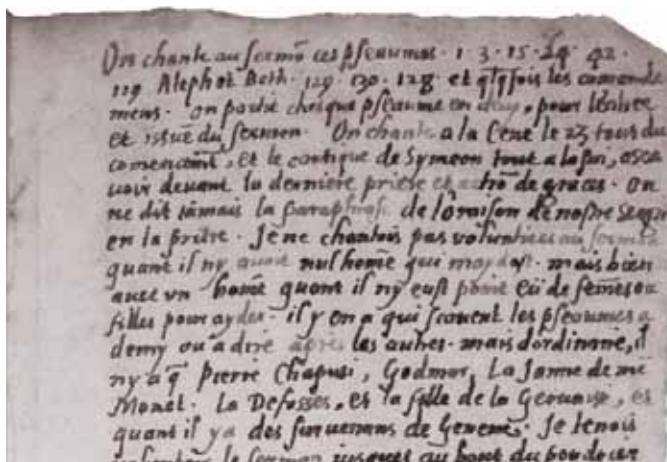 On chante au sermõ ces pseaumes . 1 . 3 . 15 . 24 . 42 .
119 Aleph et Beth . 129 . 130 . 128 . et qlqfois les comande
mens . on partit chasque pseaume en deux , pour l'entree
et issue du sermon . On chante a la Cene le 23 tous du
comencemt , et le cantique de Symeon tout a la fin , asca
voir devant la derniere priere et actiõ de graces . On
ne dit iamais la paraphrase de l'oraison de nostre Seigr
en la priere . Je ne chantois pas voluntiers au sermon
quant il ny avoit nul hõme qui maydast . mais bien
avec vn homẽ quant il ny eust point eu de femẽs ou
filles pour ayder . il y en a qui scavent les pseaumes a
demy ou a dire apres les autres . mais dordinaire , il
ny a q̃ Pierre Chapusi , Godmar , La Janne de mẽ
Monet . La Defosses , et la fille de la Gervaise , et
quant il y a des survenans de Geneve . Je tenois
le sermon iusques au bout du